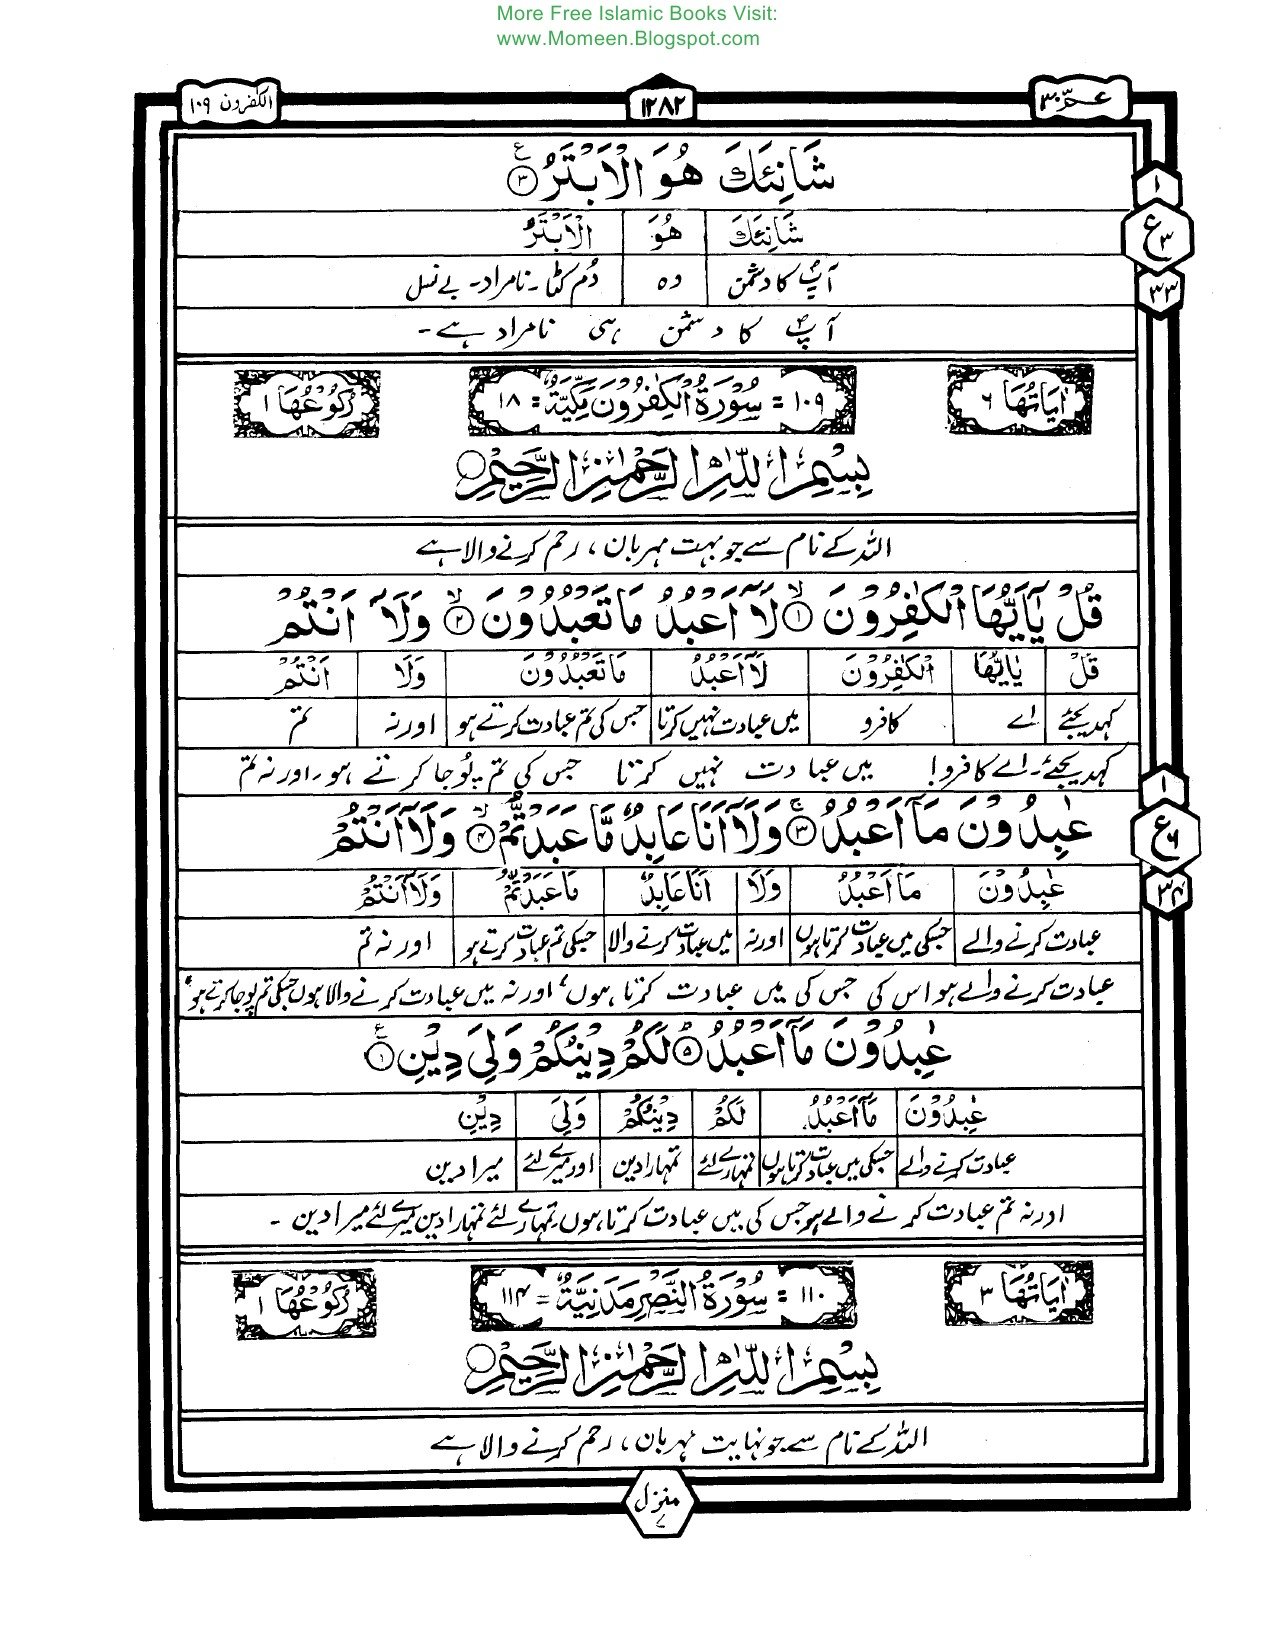 More Free Islamic Books Visit:
www.Momeen.Blogspot.com
عـمّ ۳۰ ۱۲۸۲ الکٰفرون ۱۰۹
شَانِئَكَ هُوَ الْاَبْتَرُ ۳ ع
شَانِئَكَ هُوَ الْاَبْتَرُ
آپؐ کا دشمن وہ دُم کٹا۔ نامراد۔ بے نسل
آپؐ کا دشمن ہی نامراد ہے۔
۱
ع ۳
۳۳
اٰیَاتُهَا ۶ ۱۰۹ = سُوْرَةُ الْكٰفِرُوْنَ مَكِّیَّةٌ = ۱۸ رُكُوْعُهَا ۱
بِسْمِ اللّٰهِ الرَّحْمٰنِ الرَّحِیْمِ
اللہ کے نام سے جو بہت مہربان، رحم کرنے والا ہے
قُلْ یٰۤاَیُّهَا الْكٰفِرُوْنَ ۱ لَاۤ اَعْبُدُ مَا تَعْبُدُوْنَ ۲ وَلَاۤ اَنْتُمْ
قُلْ یٰۤاَیُّهَا الْكٰفِرُوْنَ لَاۤ اَعْبُدُ مَا تَعْبُدُوْنَ وَلَاۤ اَنْتُمْ
کہدیجئے اے کافرو میں عبادت نہیں کرتا جس کی تم عبادت کرتے ہو اور نہ تم
کہدیجئے۔ اے کافرو! میں عبادت نہیں کرتا جس کی تم پوجا کرتے ہو۔ اور نہ تم
عٰبِدُوْنَ مَاۤ اَعْبُدُ ۳ وَلَاۤ اَنَا عَابِدٌ مَّا عَبَدْتُّمْ ۴ وَلَاۤ اَنْتُمْ
عٰبِدُوْنَ مَاۤ اَعْبُدُ وَلَاۤ اَنَا عَابِدٌ مَّا عَبَدْتُّمْ وَلَاۤ اَنْتُمْ
عبادت کرنے والے جسکی میں عبادت کرتا ہوں اور نہ میں عبادت کرنے والا جسکی تم عبادت کرتے ہو اور نہ تم
عبادت کرنے والے ہو اس کی جس کی میں عبادت کرتا ہوں، اور نہ میں عبادت کرنے والا ہوں جسکی تم پوجا کرتے ہو،
۱
ع ۶
۳۴
عٰبِدُوْنَ مَاۤ اَعْبُدُ ۵ لَكُمْ دِیْنُكُمْ وَلِیَ دِیْنِ ۱ ع
عٰبِدُوْنَ مَاۤ اَعْبُدُ لَكُمْ دِیْنُكُمْ وَلِیَ دِیْنِ
عبادت کرنے والے جسکی میں عبادت کرتا ہوں تمہارے لئے تمہارا دین اور میرے لئے میرا دین
اور نہ تم عبادت کرنے والے ہو جس کی میں عبادت کرتا ہوں۔ تمہارے لئے تمہارا دین میرے لئے میرا دین۔
اٰیَاتُهَا ۳ ۱۱۰ = سُوْرَةُ النَّصْرِ مَدَنِیَّةٌ = ۱۱۴ رُكُوْعُهَا ۱
بِسْمِ اللّٰهِ الرَّحْمٰنِ الرَّحِیْمِ
اللہ کے نام سے جو نہایت مہربان، رحم کرنے والا ہے
منزل ۷